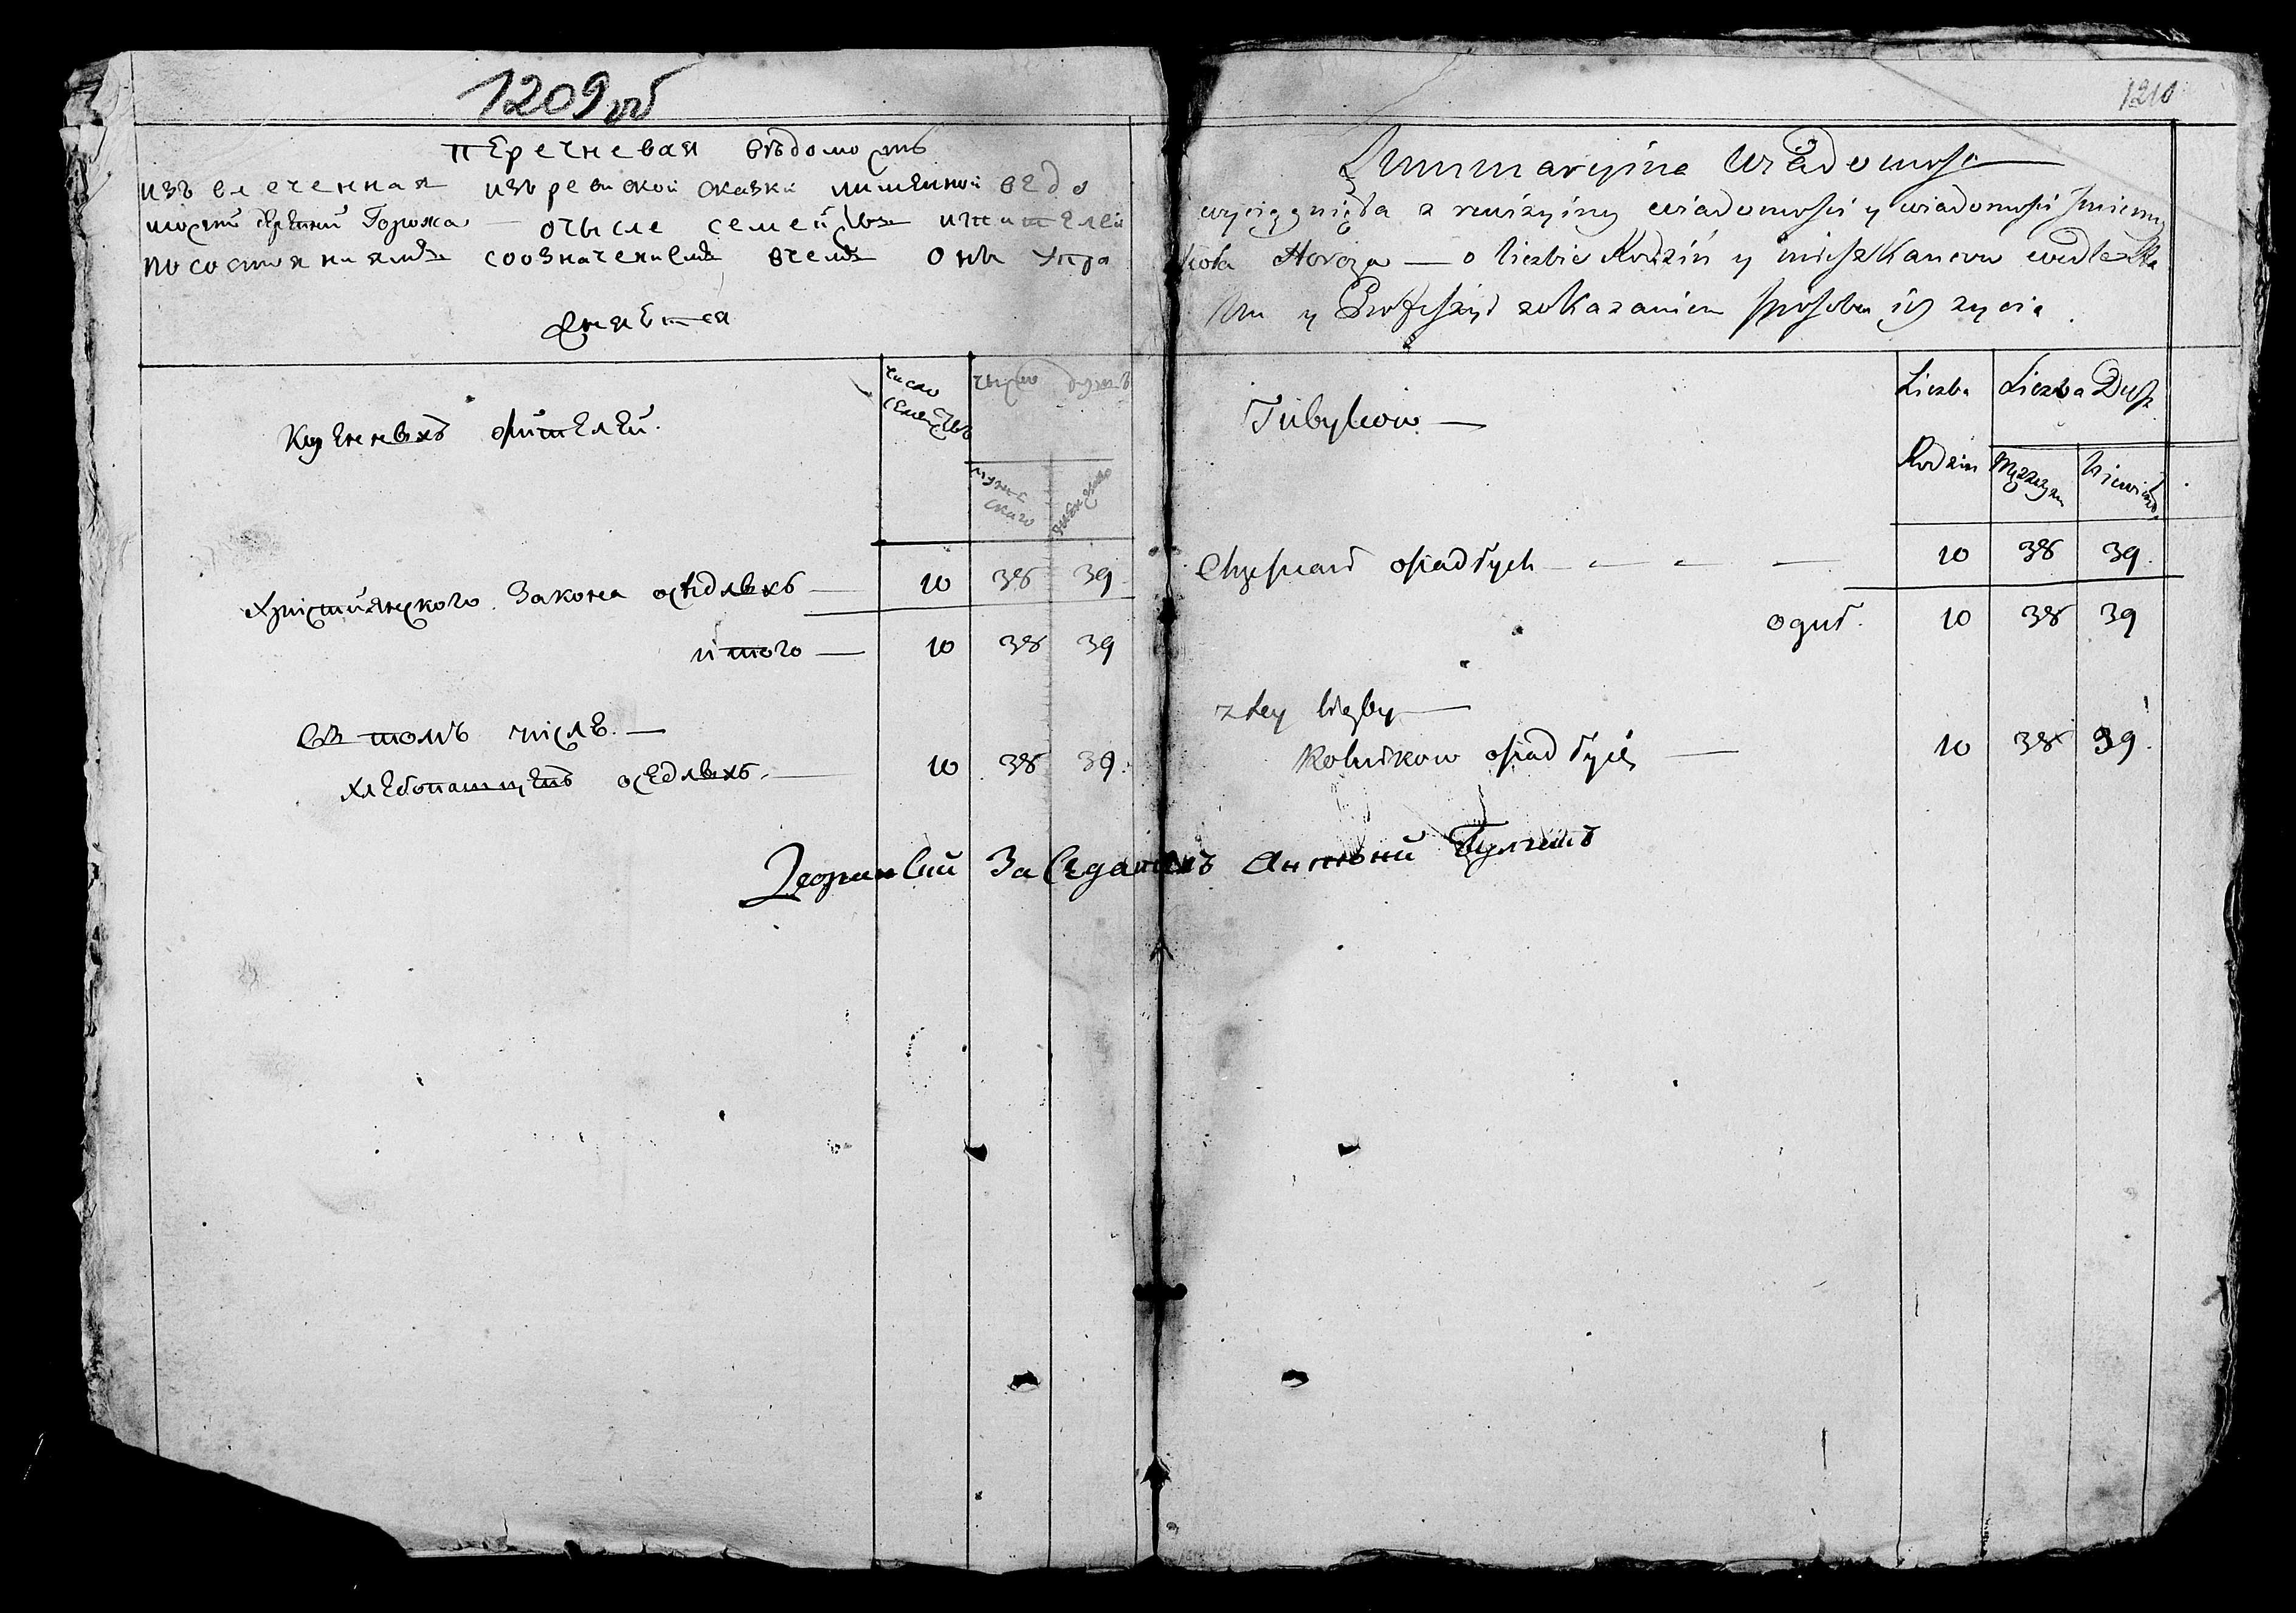 1209 об
перечневая вѣдомость
извлеченная изъ ревиской сказки имянной ведо
мости Горожа — очысле семействъ ижителей
по состояниямъ соозначениемъ вчемъ они упра
жняются
Коренныхъ жителей.
число семействъ
число душъ
мужескаго
женскаго
християнского Закона оседлыхъ — 10 38 39
итого — 10 38 39
въ томъ числѣ. —
хлебопашцевъ оседлыхъ. — 10 38 39.
Засѣдатель Антоний
1210
Summaryina Wiadomosc
wyciągnięta z rewizyiney wiadomości y wiadomości Imienney
Horoża — o liczbie Rodzin y mieszkancow wedle Sta
nu y Professyi zokazaniem sposobu ich zycia.
Tubylcow —
Liczba Rodzin
Liczba Dusz
Męzczyzn
Niewiast.
Chrzescian osiadłych — — — — 10 38 39.
oguł. 10 38 39
z tey liczby —
Rolnikow osiadłych — 10 38 39.